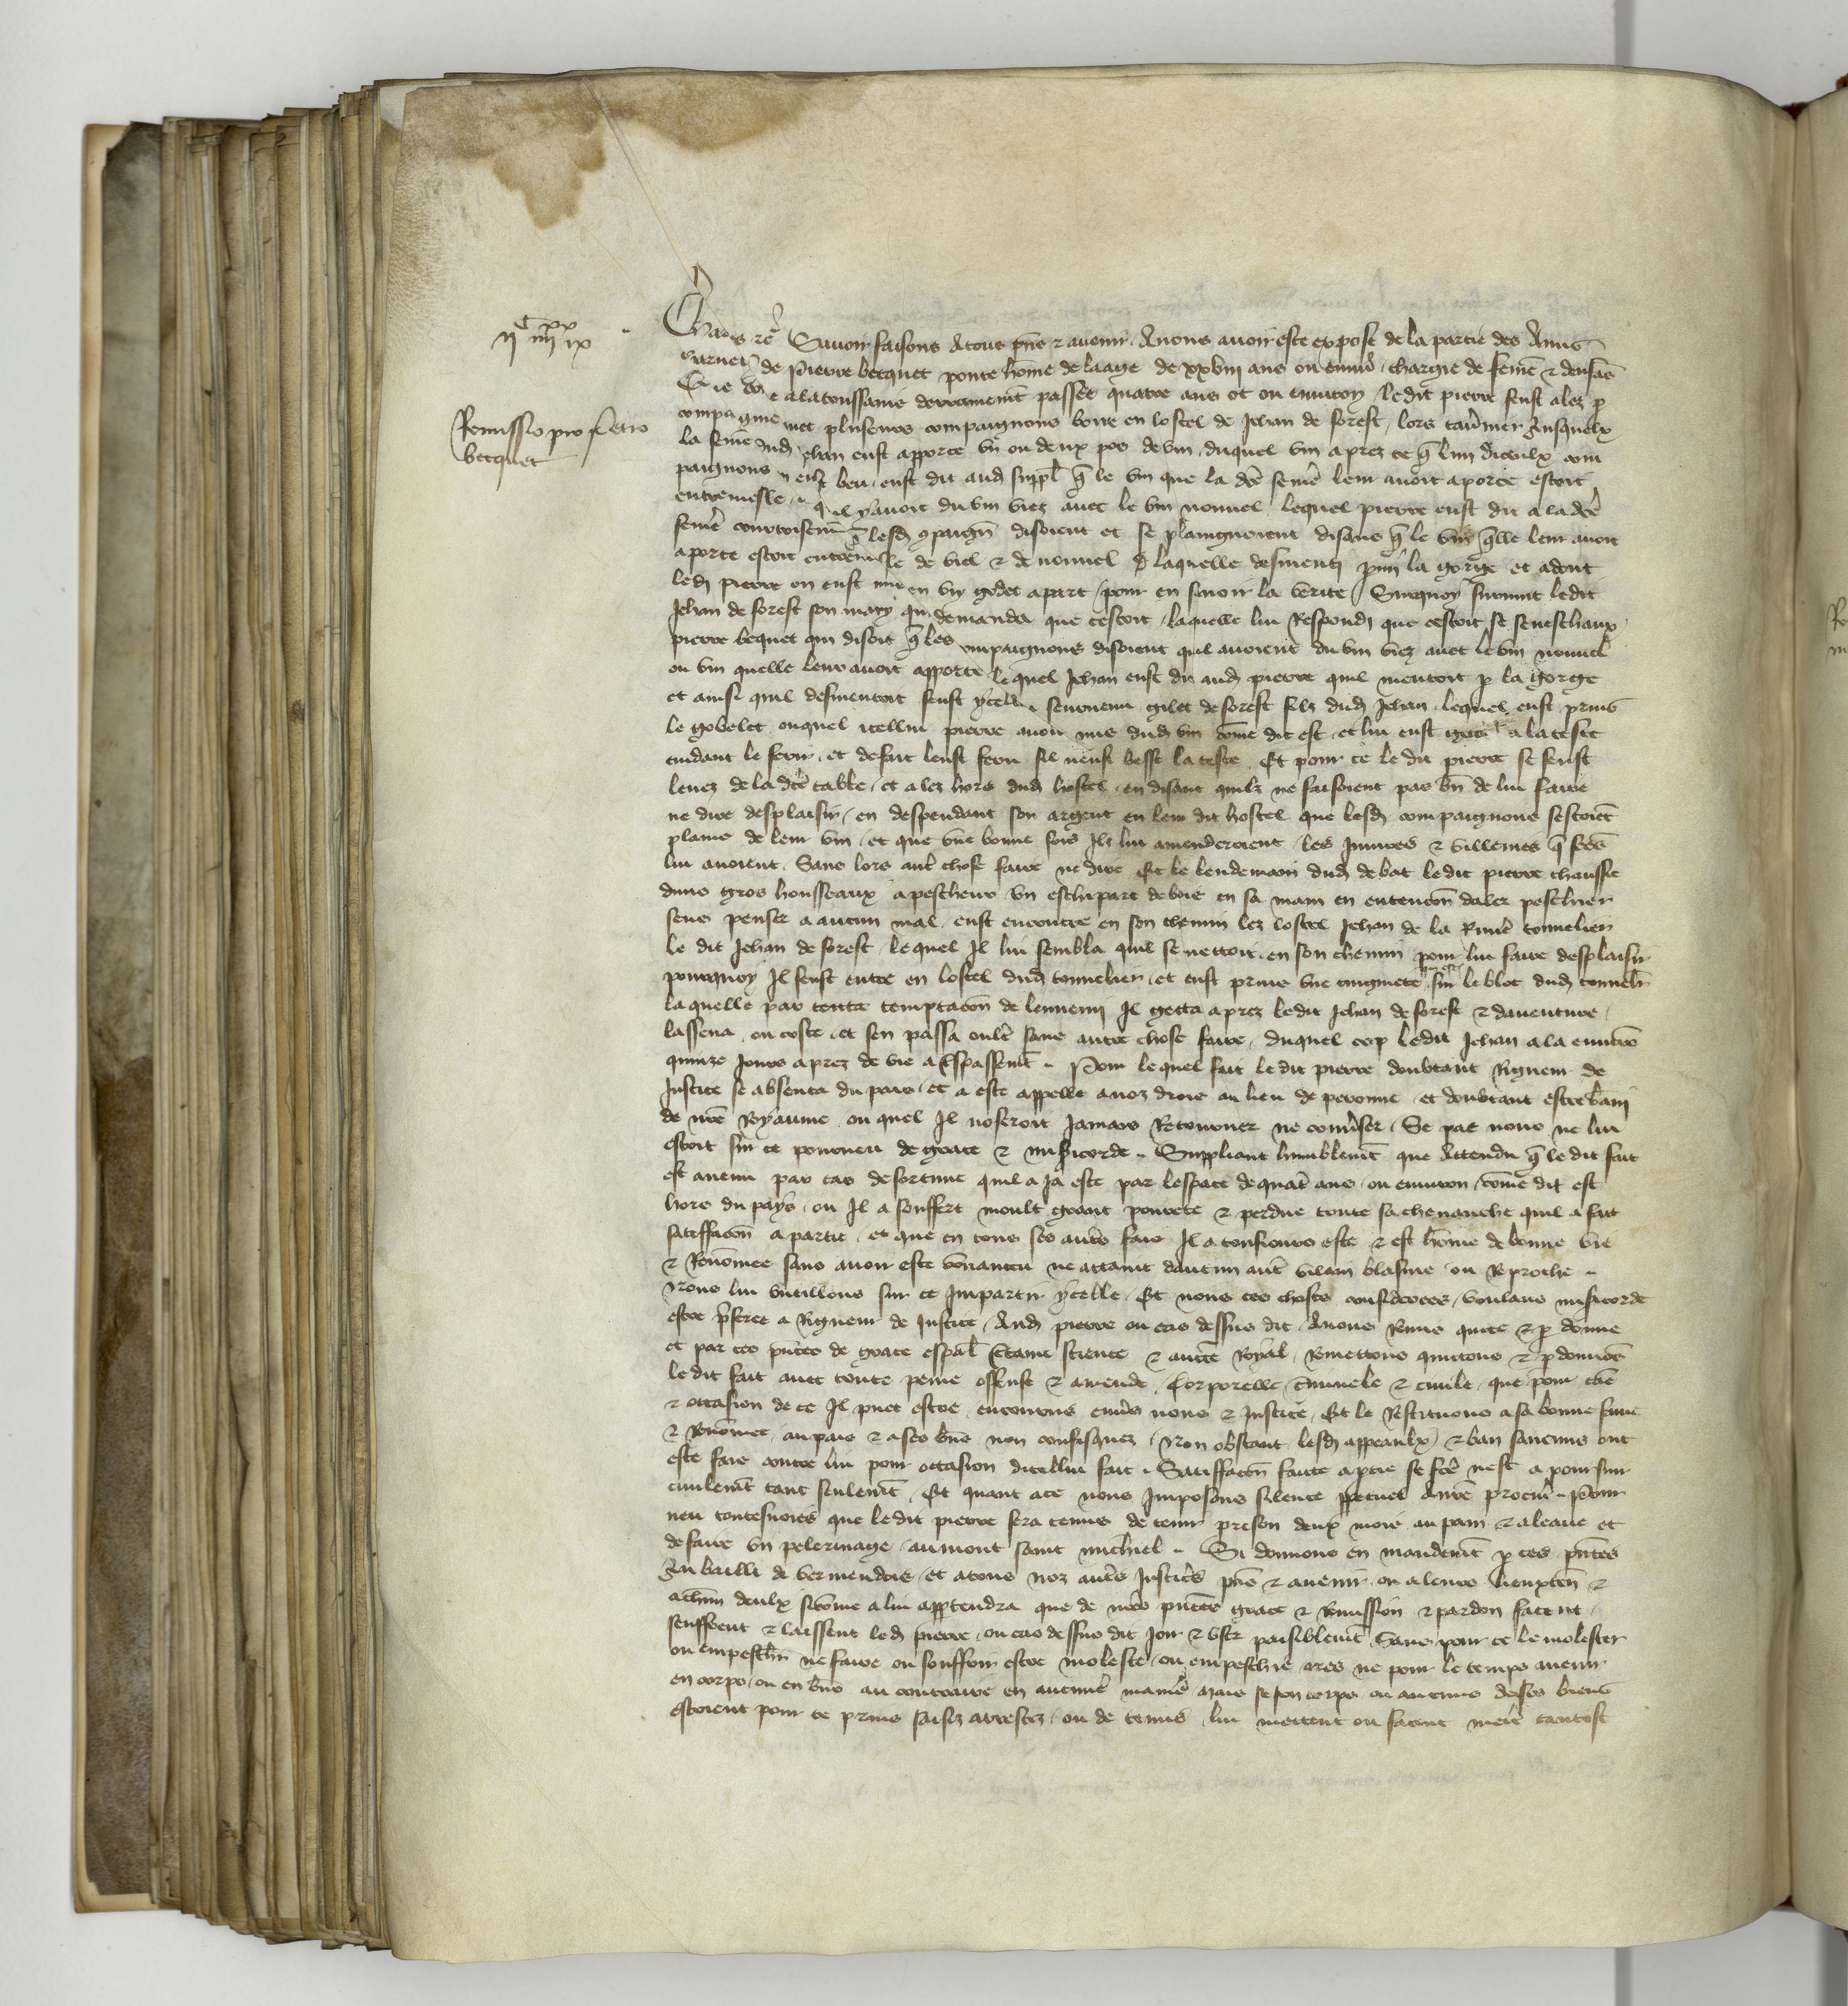 IIc IIIIxx IX
Remissio pro Petro
becquet
Charles etc Savoir faisons A tous pns et avenir. Avons avoir este expose de la partie des Amis
charnelz de Pierre becquet povre home de laage de xxviii ans ou environ chargie de feme et denfans
Que a la toussains derrainemt passee quatre ans ot ou environ ledit pierre feust alez p
compagnie avec pluseurs compaignons boire en lostel de Jehan de forest lors tavnier Ausquelx
la feme dud Jehan eust apporte un ou deux pos de vin duquel vin aprez ce q lun diceulx com
paignons en eust beu eust dit aud suppl q le vin que la dce feme leur avoit aporte estoit
entremesle et quil y avoit du vin viez avec le vin nouvel lequel pierre eust dit a la dce
feme courtoisemt q lesd compaign disoient et se plaingnoient disans q le vin qlle leur avoit
aporte estoit entremesle de viel et de nouvel laquelle desmenti pmi la gorge et adont
led pierre en eust mis en un godet apart pour en savoir la verite Surquoy survint ledit
Jehan de forest son mary qui demanda que cestoit laquelle lui Respondi que cestoit se seneschaux
pierre bequet qui disoit q les compaignons disoient quil avoient du vin viez avec le vin nouvel
ou vin quelle leur avoit apporte lequel Jehan eust dit aud pierre quil mentoit p la gorge
et ainsi quil desmentoit feust ycellui seurvenu gilet de forest filz dud Jehan lequel eust prins
le gobelet ouquel icellui pierre avoit mis dud vin come dit est et lui eust gette a la teste
cuidant le ferir et de fait leust feru sil neust besse la teste Et pour ce le dit pierre se feust
levez de la dce table et alez hors dud hostel en disant quilz ne faisoient pas bn de lui faire
ne dire desplaisir en despendant son argent en leur dit hostel que lesd compaignons sestoiet
plains de leur vin et que une bonne fois Ilz lui amenderoient les Injures et villenies q fces
lui avoient Sans lors autre chose faire ne dire Et le lendemain dud debat ledit pierre chaussie
duns gros housseaux a pescheur un eschipart de bois en sa main en entencion daler peschier
sens penser a aucun mal eust encontre en son chemin lez lostel Jehan de la Riviere tonnelier
le dit Jehan de forest lequel Il lui sembla quil se mettoit en son chemin pour lui faire desplaisir
pourquoy Il feust entre en lostel dud tonnelier et eust prins une congniete sur le bloc dud tonnelr
laquelle par temptacion de lennemi Il getta aprez ledit Jehan de forest et daventure
lassena ou coste et sen passa oultre sans autre chose faire duquel cop ledit Jehan a la environ
quinze jours aprez de vie a trespassemt Pour lequel fait le dit pierre doubtant Rigueur de
Justice se absenta du pais et a este appelle a noz drois au lieu de peronne et doubtant estre bani
de nre Royaume ou quel Il noseroit Jamais Retourner ne converser Se par nous ne lui
estoit sur ce pourveu de grace et misericorde Suppliant humblemt que Attendu q le dit fait
est avenu par cas de fortune quil a ja este par lespace de quatre ans ou environ come dit est
hors du pays ou Il a souffert moult grant povrete et perdue toute sa chevanche quil a fait
satiffacion a partie et que en tous ses autres fais Il a tousjours este et est home de bonne vie
et Renomee sans avoir este convaincu ne attaint daucun autre vilain blasme ou Reproche
Nous lui vueillons sur ce Impartir ycelle Et nous ces choses considerees voulans misericorde
estre pferee a Rigueur de Justice Aud pierre ou cas dessus dit Avons Remis quitte et p donne
et par ces pntes de grace espal ctaine science et aucte Royal Remettons quittons et p donnons
le dit fait avec toute peine offense et amende Corporelle criminele et civile que pour cause
et occasion de ce Il puet estre encourus envers nous et Justice Et le Restituons a sa bonne fame
et Renommee au pais et a ses bns non confisquez Non obstant lesd appeaulx et ban saucuns ont
este fais contre lui pour occasion dicellui fait Satiffacion faicte a ptie se fce nest a poursuir
civilemt tant seulemt Et quant a ce nous Imposons silence ppetuel A nre procur Pour
veu toutesvoies que ledit pierre sera tenus de tenir prison deux mois au pain et a leaue et
de faire un pelerinage au mont saint michiel Si donnons en mandemt p ces pntes
Au bailli de vermendois et a tous noz autres Justicrs pns et avenir ou a leurs lieuxten et
a chun deulx sicome a lui apptendra que de nos pntes grace et Remission et pardon facent
seuffrent et laissent led pierre ou cas dessus dit joir et user paisiblemt Sans pour ce le molester
ou empeschier ne faire ou souffrir estre moleste ou empeschie ores ne pour le temps avenir
en corps ou en bns au contraire en aucune maniere mais se son corps ou aucuns de ses biens
estoient pour ce prins saisiz arrestez ou detenus lui mettent ou facent mectre tantost